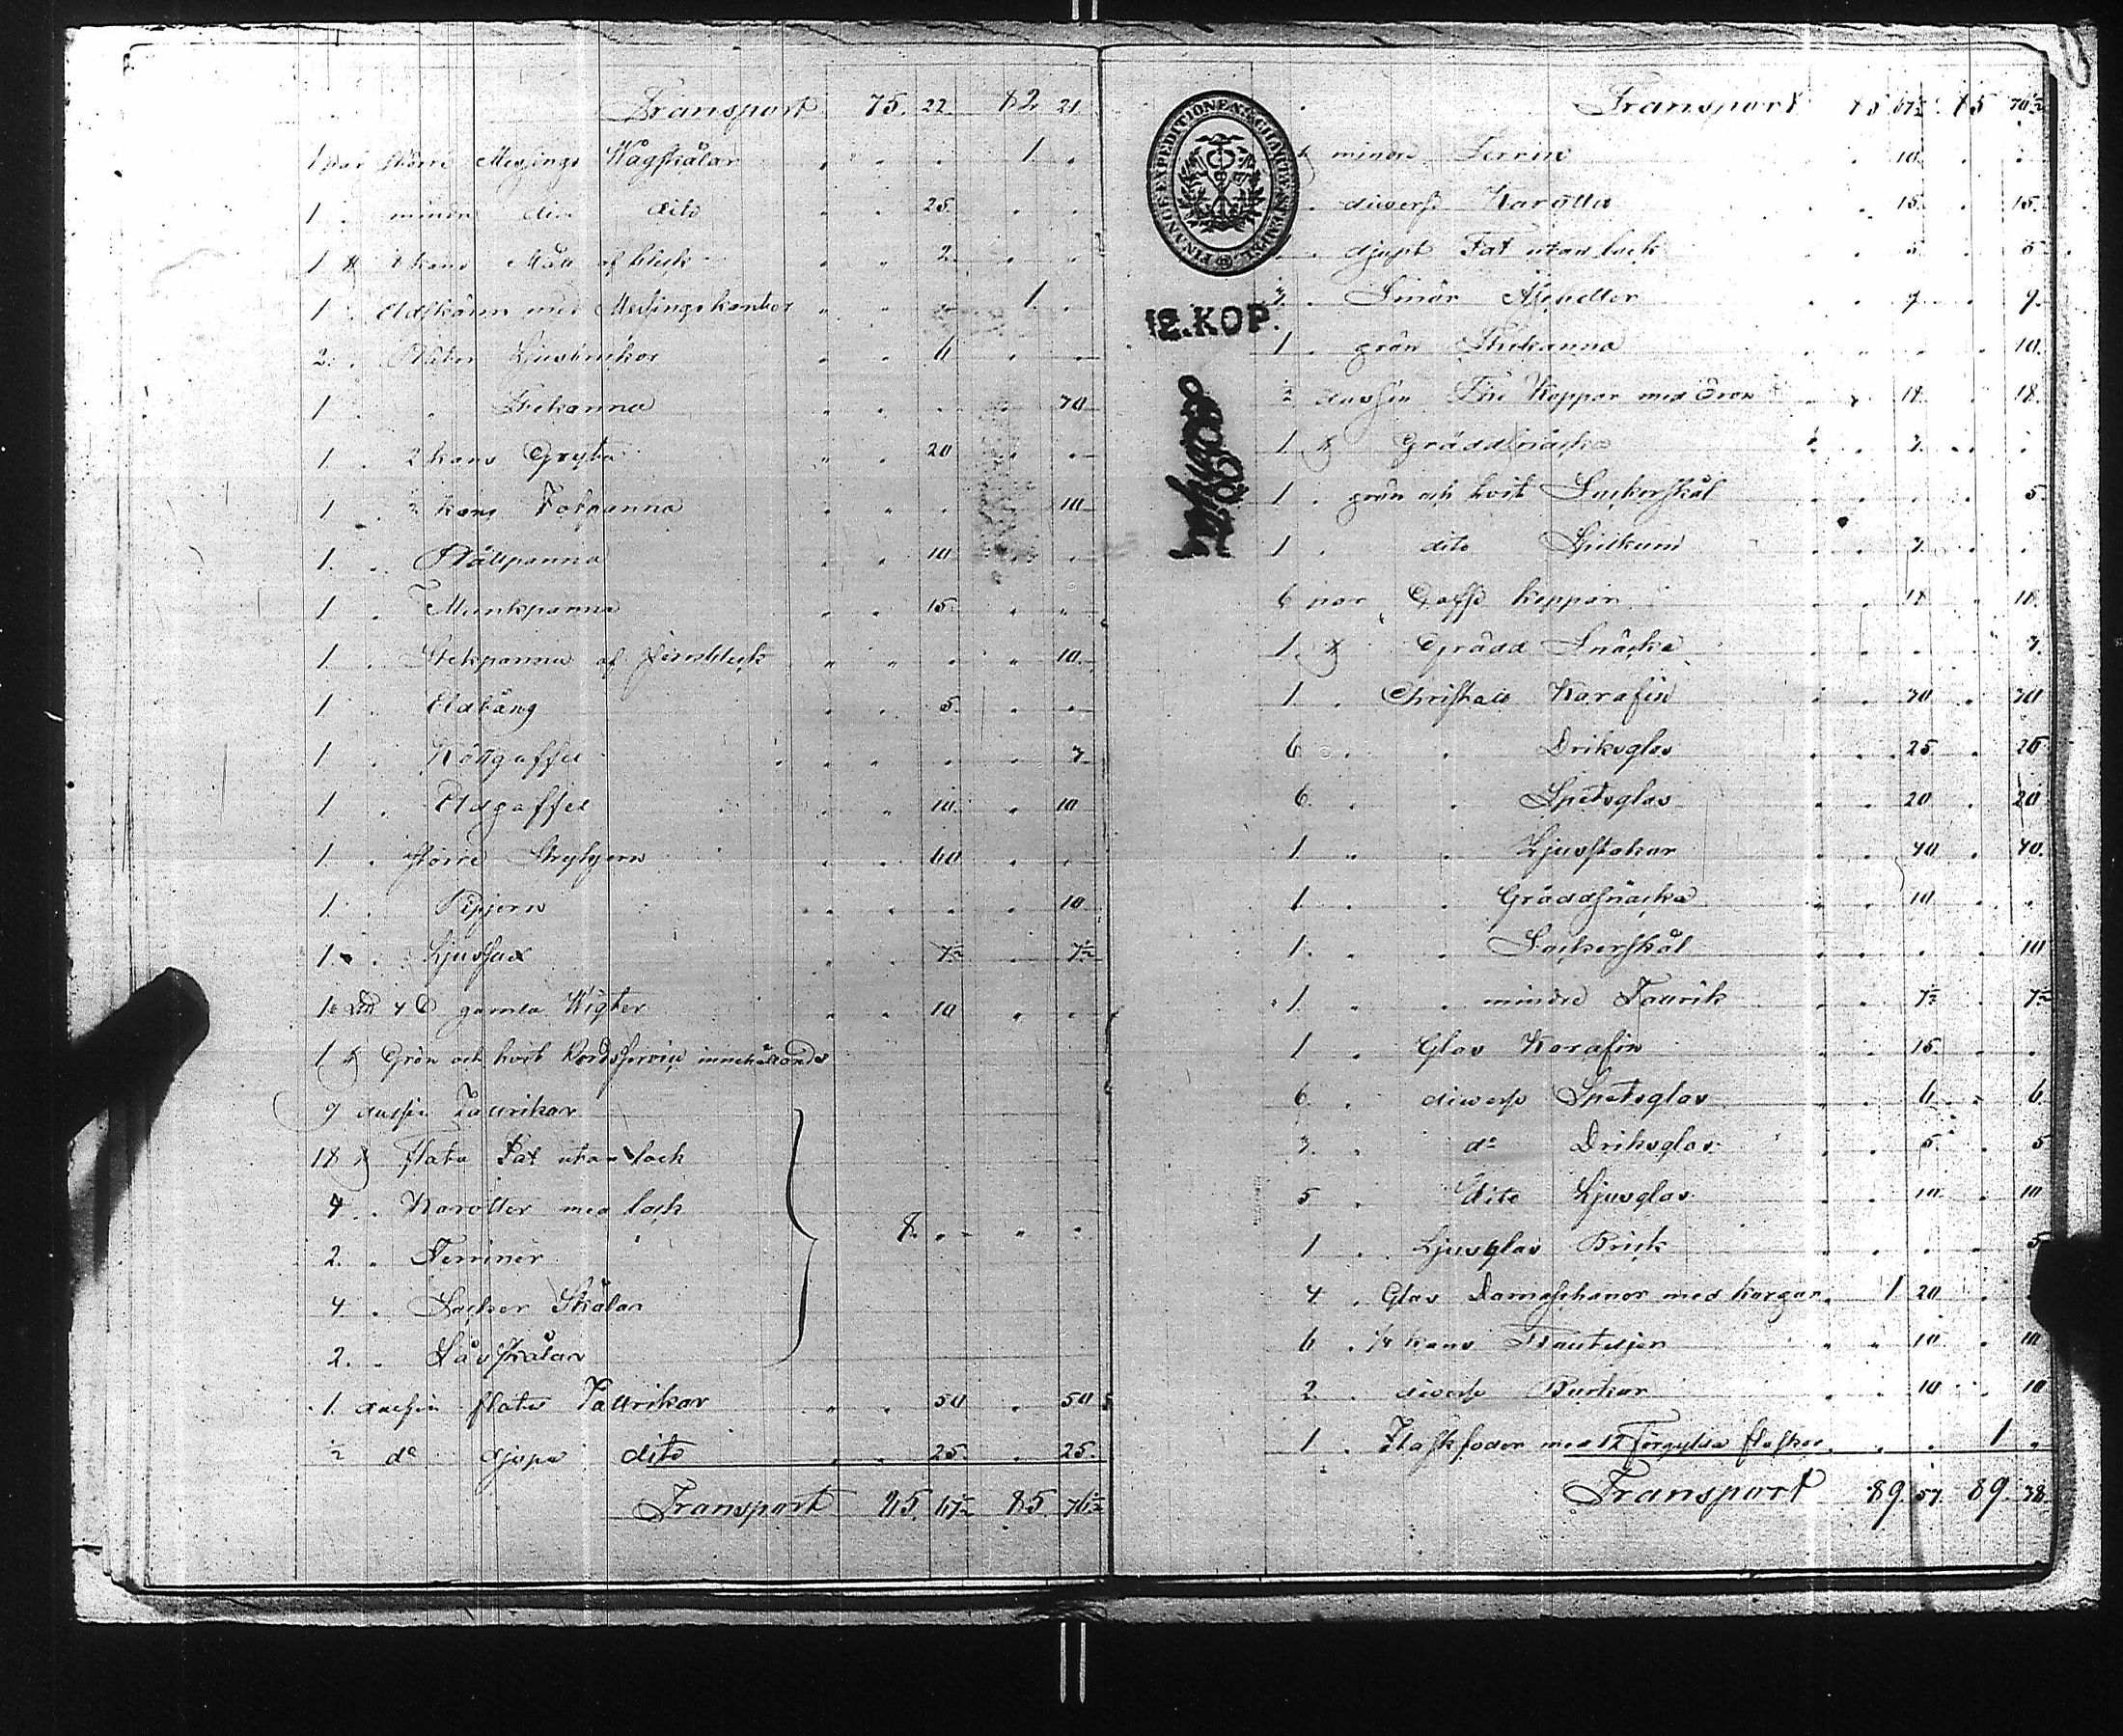 Transport 75. 22. 82. 21.
1 par större Messings Wågskålar 1.
1 mindre dito dito 25.
1 st kans Mått af bleck 2.
1 Eldskärm med Messingskanter 1.
2. Pläter Ljusbrickor 6
1 Thekanna 70
1 2 kans Gryta 20
1 2 kans Fotpanna 10
1. Plättpanna 10
1 Munkpanna 15.
1. Stekpanna af jernbleck 10.
1 Eldtång 5.
1 Köttgaffel 7
1 Eldgaffel 10. 10
1 större Strykjern 60
1. Pipjern 10
1. Ljussax 7½ 7½
gamla Wigter 10
1 st Grön och hvit Bordsservis innehållande
9 dussin Tallrikar
18 st flata Fat utan lock
4 Karotter med lock 8.
2. Terriner
4 Socker Skålar
2. Såsskålar
1. dussin flata Tallrikar 50 50
½ do djupa dito 25. 25.
Transport 85. 67½ 85. 76½
FINANCE EXPEDITIONENS CHARTÆ STEMPEL
12. KOP.
Transport 85 67½ 85 76½
mindre Terrin 10.
diverse Karotter 15. 15.
djupt Fat utan lock 5 5
3. Smör Assietter 9 9.
1. grön Thekanna 10.
½ dussin The Koppar med Öron 18. 18.
1 st Gräddsnäcka 7.
1 grön och hvit Sockerskål 5.
1 dito Spilkum 7.
6 par Caffe koppar 18 18.
1. st Grädd Snäcka 7.
1. Christall Karafin 70 70
6 Driksglas 25. 25
6. Spetsglas 20 20
1. Ljusstakar 40 40.
1 Gräddsnäcka 10
1. Sockerskål 10
1 mindre Tallrik 7½ 7½
1 Glas Karafin 15.
6. diverse Spetsglas 6 6.
3. do Driksglas 5. 5
5 dito Ljusglas 10 10
1 Ljusglas Brick 5
4 Glas Damejeanor med korgar 1 20
6 ¼ kans Bouteljer 10 10
2. diverse Burkar 10 10
1 Flaskfoder med 12 förgylda flaskor 1
Transport 89. 57. 89. 78.